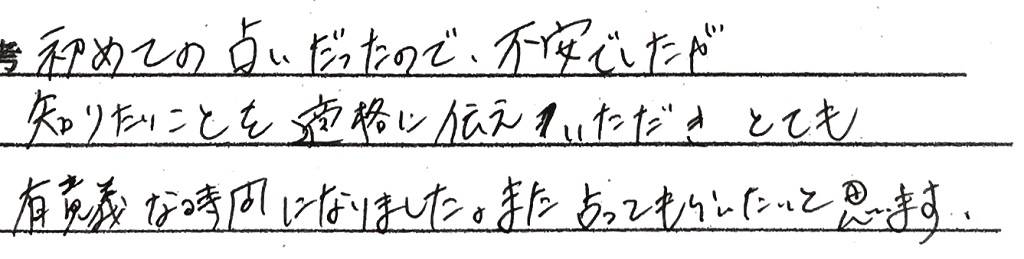 初めての占いだったので、不安でしたが
知りたいことを適格に伝えていただき とても
有意義な時間になりました。また占ってもらいたいと思います。